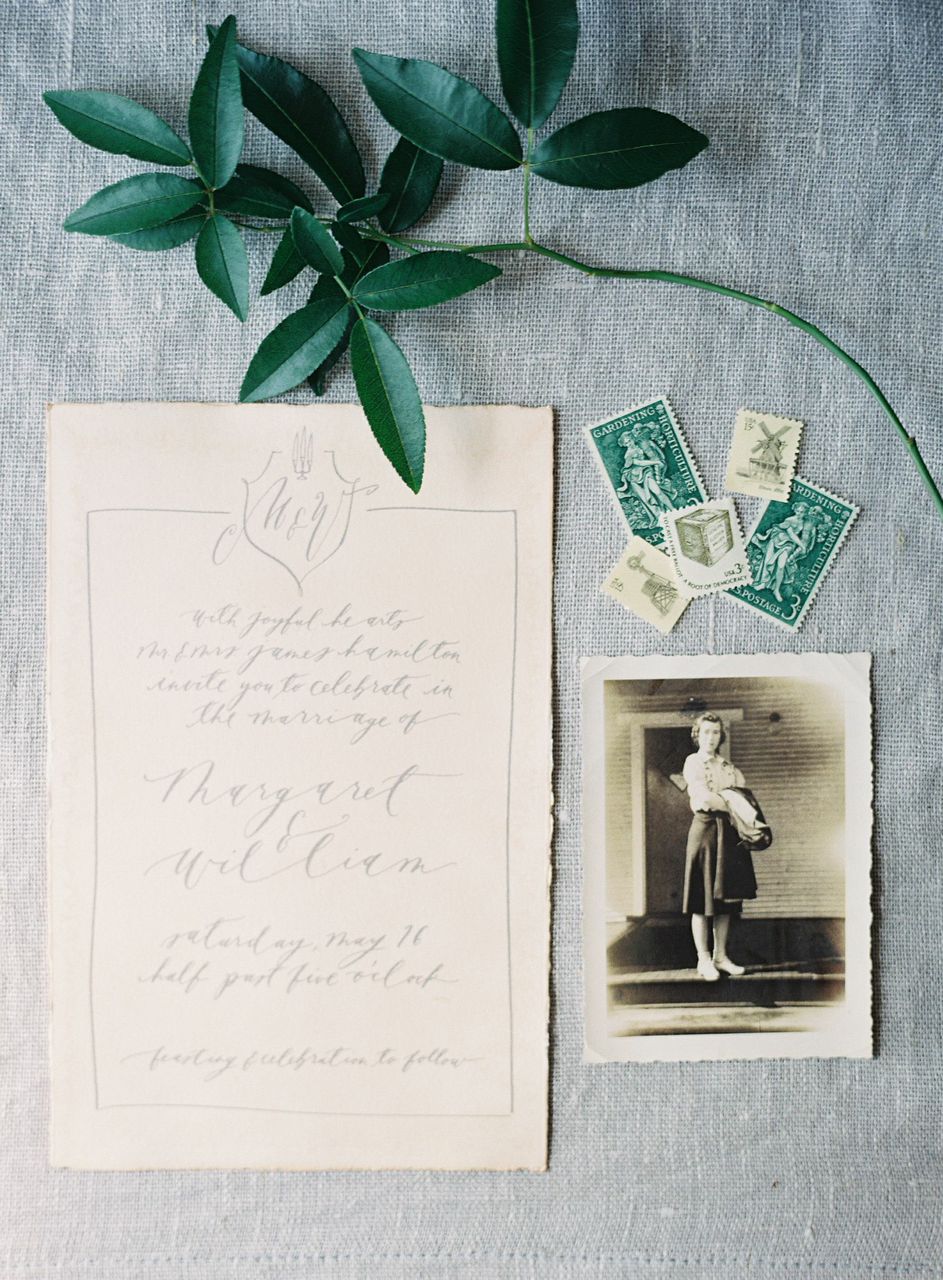 M & W
with joyful hearts
mr & mrs james hamilton
invite you to celebrate in
the marriage of
Margaret
&
William
saturday, may 16
half past five o'clock
feasting & celebration to follow
GARDENING HORTICULTURE
U.S. POSTAGE
15c
TO CAST A FREE BALLOT
A ROOT OF DEMOCRACY
USA 3c
GARDENING HORTICULTURE
U.S. POSTAGE 3c
15c